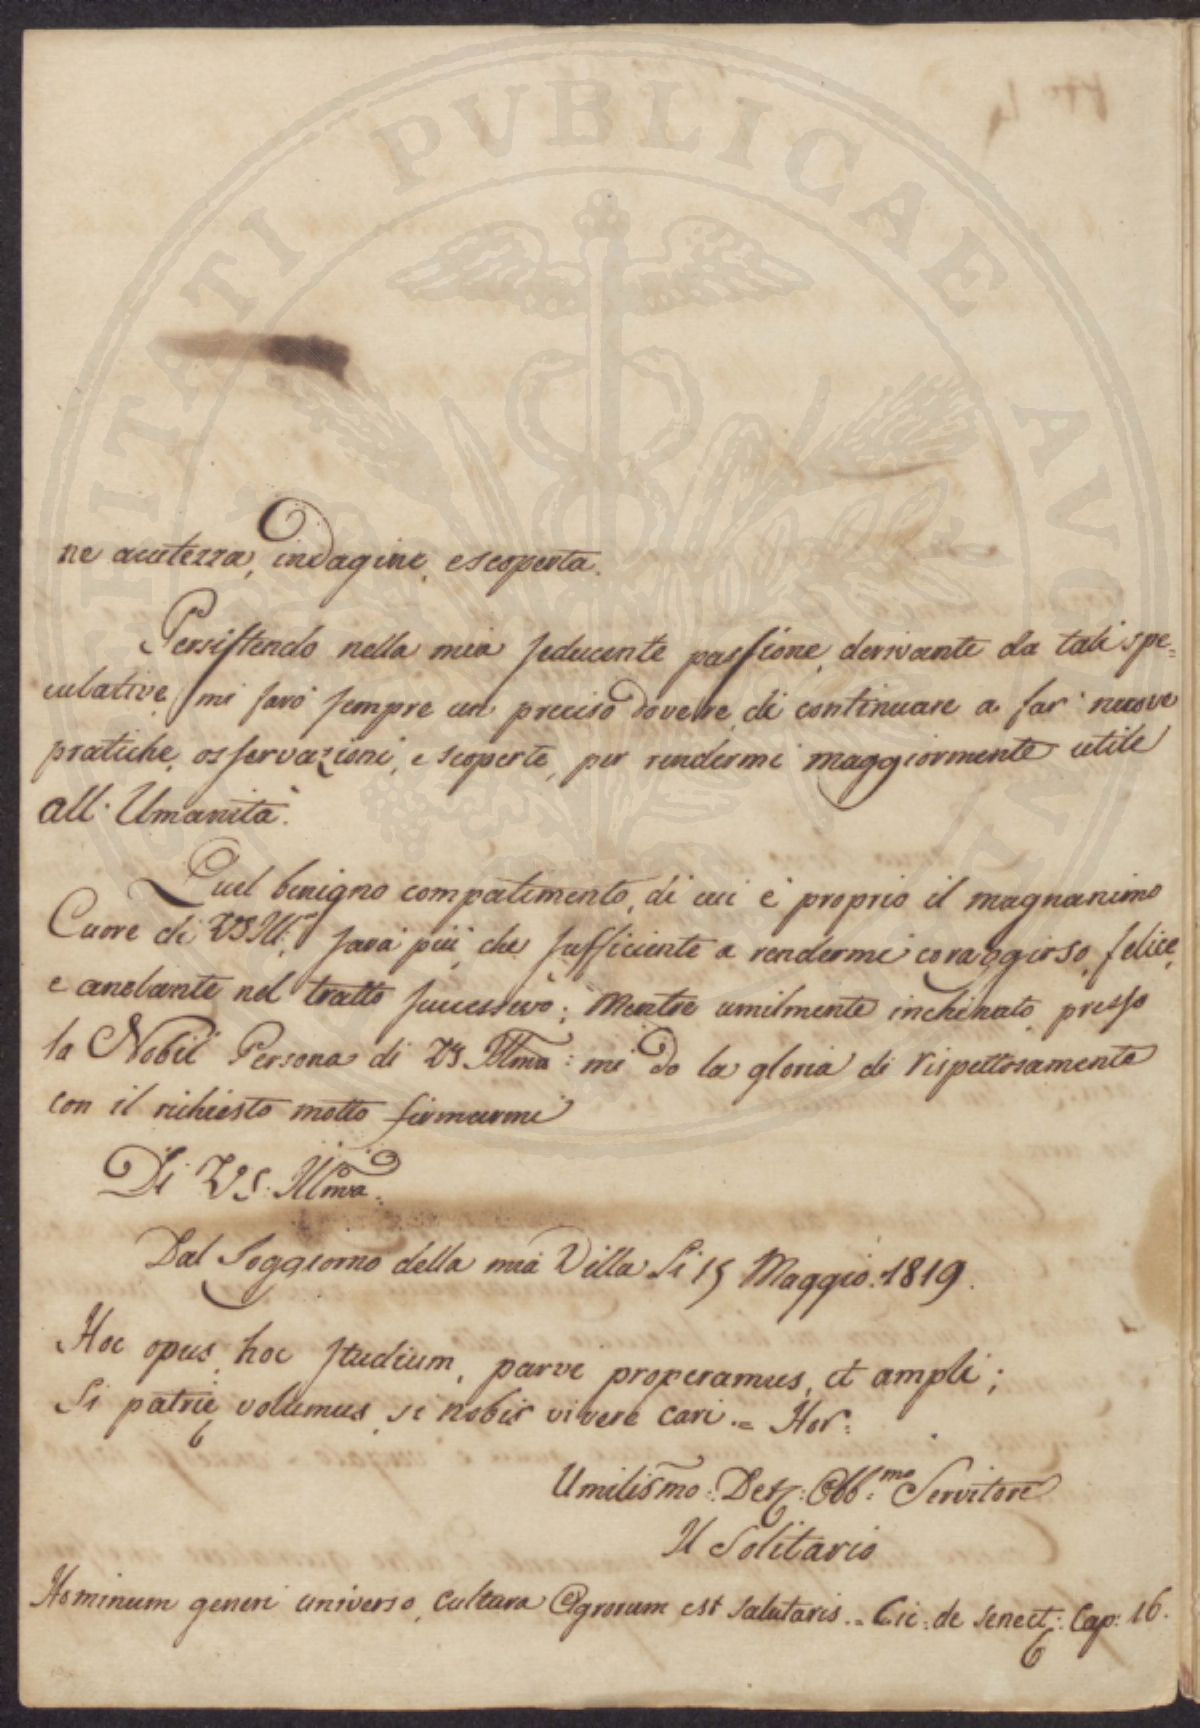 ne acutezza, indagine, e scoperta.
Persistendo nella mia seducente passione, derivante da tali spe=
culative, mi sarò sempre un preciso dovere, di continuare a far nuove
pratiche, osservazioni, e scoperte, per rendermi maggiormente utile
all' Umanità.
Quel benigno compatimento, di cui è proprio il magnanimo
Cuore di VS Ill:ma sarà più, che sufficiente a rendermi coraggioso, felice,
e anelante nel tratto successivo; Mentre umilmente inchinato presso
la Nobil Persona di VS Illma: mi do la gloria di rispettosamente
con il richiesto motto firmarmi
Di VS: Illma:
Dal Soggiorno della mia Villa Li 15 Maggio 1819.
Hoc opus, hoc studium, parvi properamus, et ampli;
Si patrię volumus, si nobis vivere cari.= Hor:
Umilismo: Dev: Obb:mo Servitore
Il Solitario
Hominum generi universo, cultura Agrorum est salutaris.= Cic: de senect: Cap: 16.
UTILITATI PUBLICAE